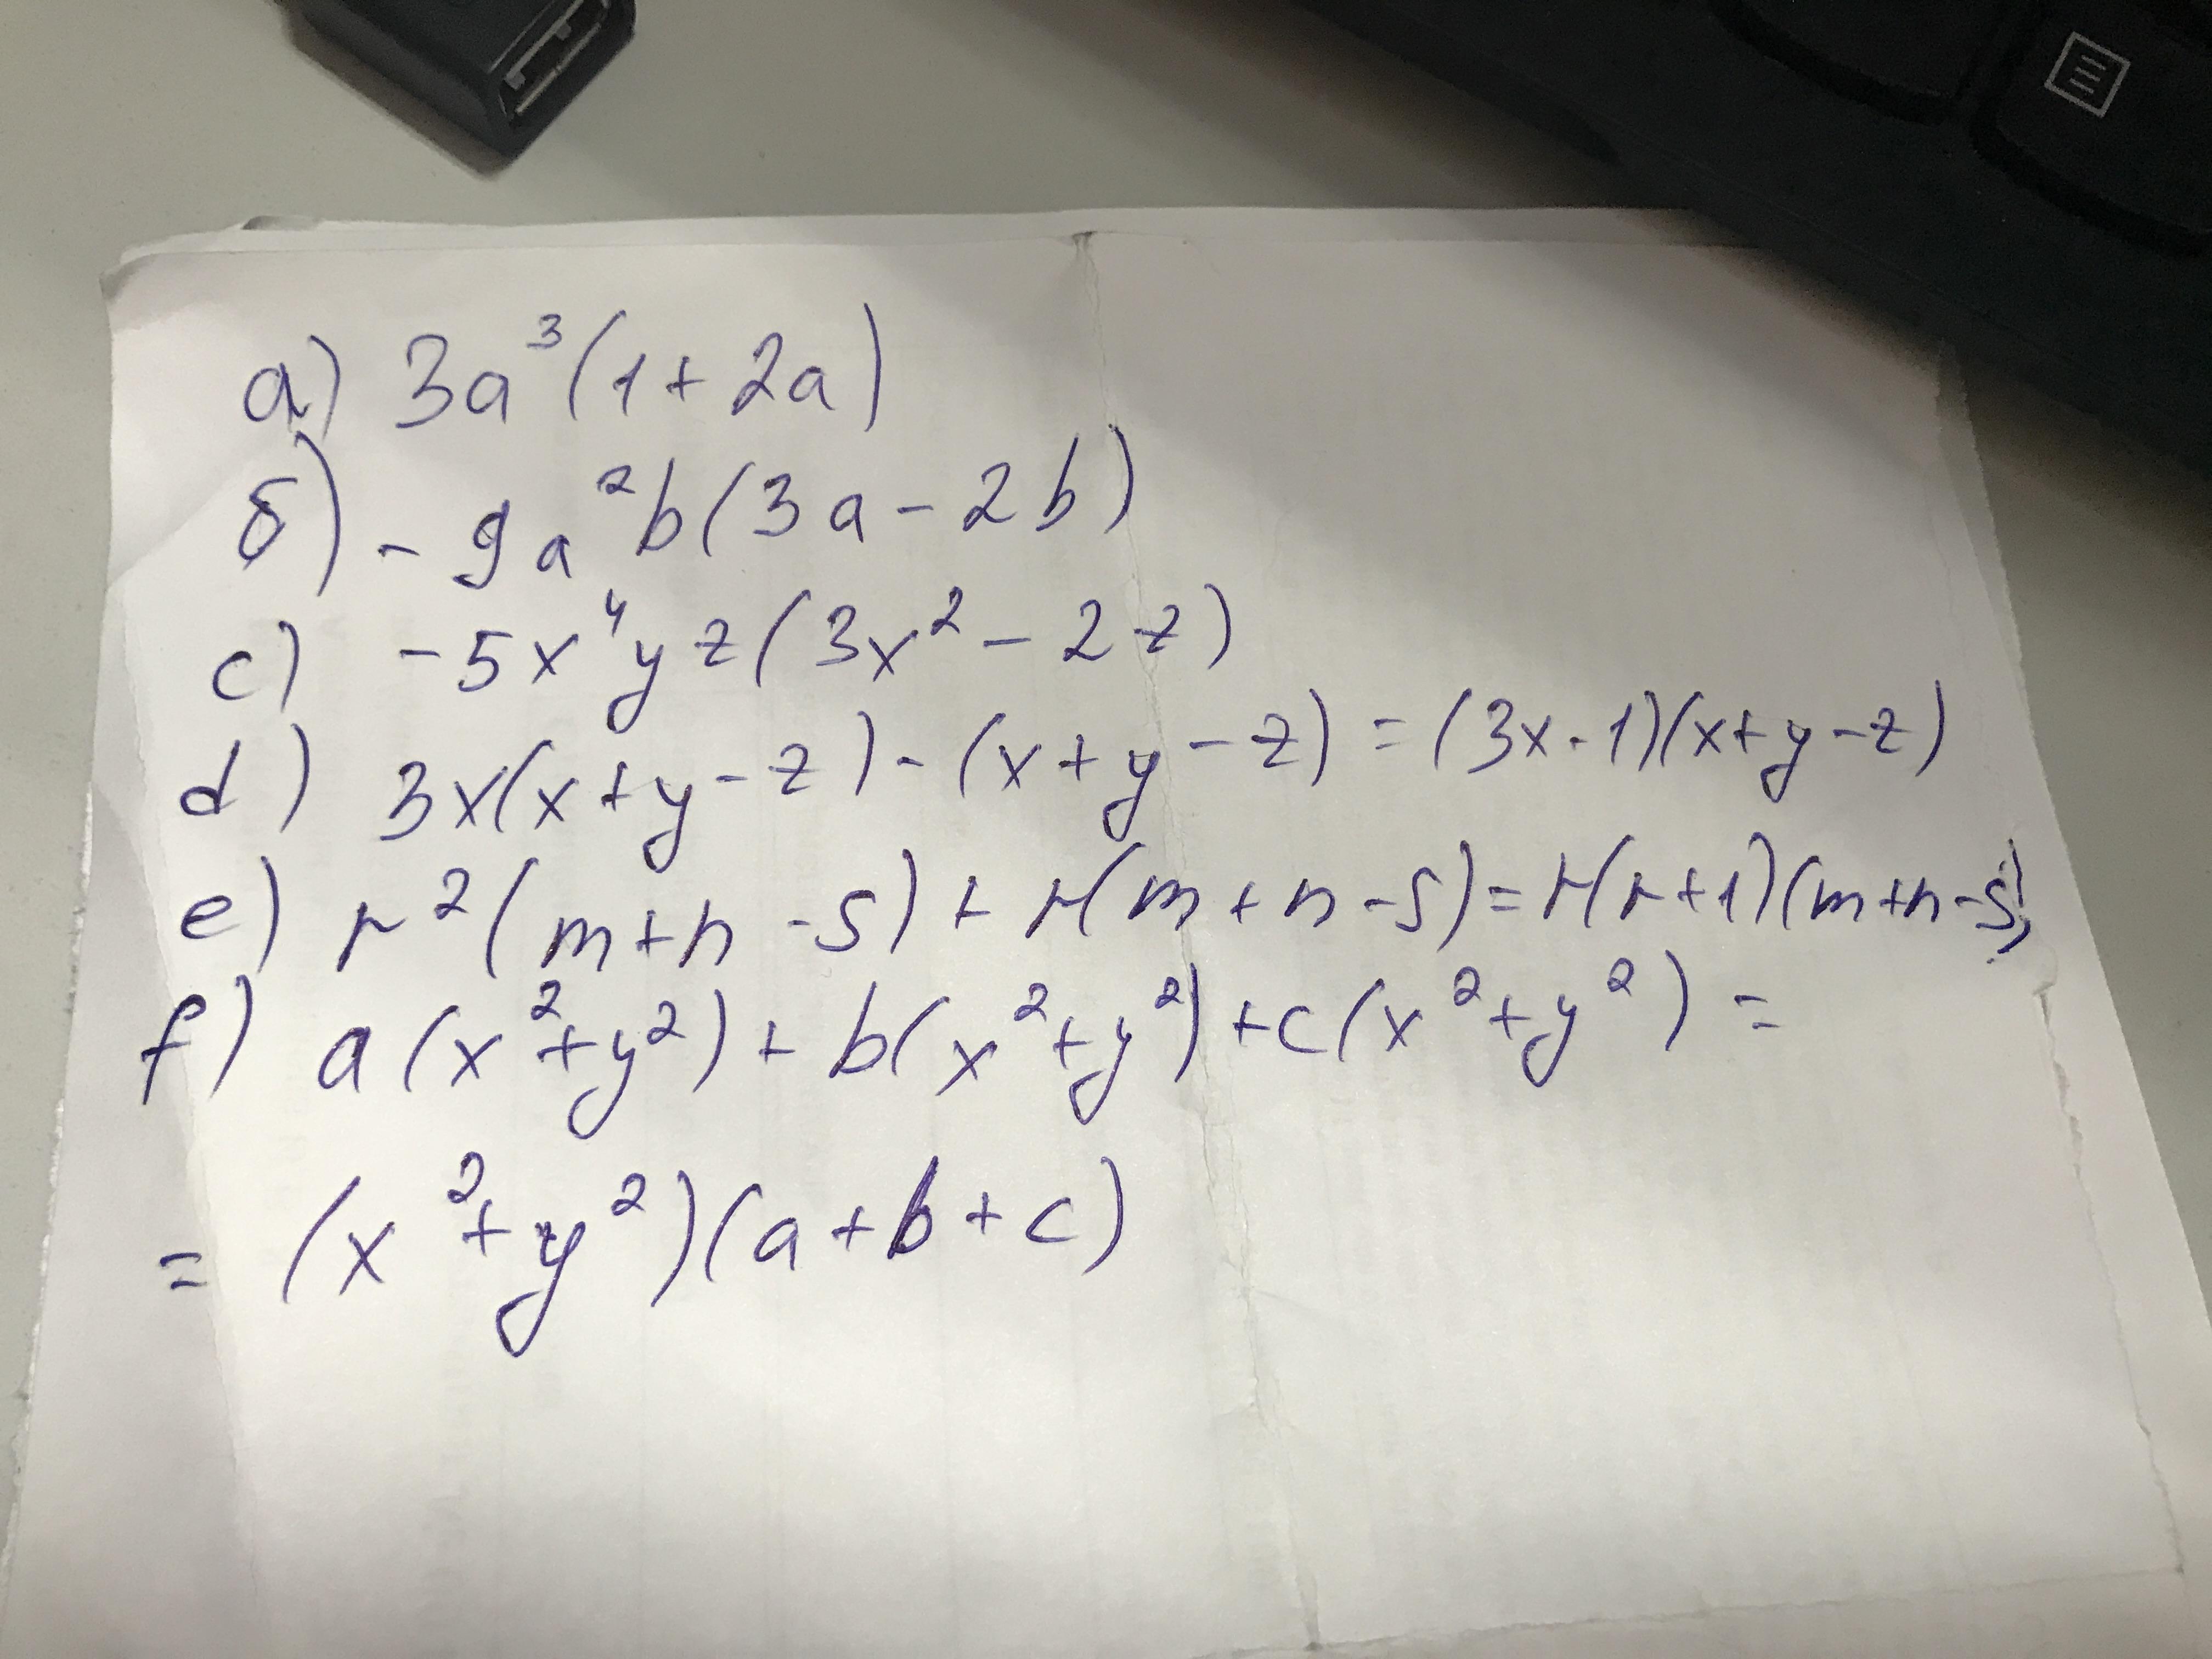 a) 3a³(1+2a)
б) -9a²b(3a-2b)
c) -5x⁴yz(3x²-2z)
d) 3x(x+y-z)-(x+y-z)=(3x-1)(x+y-z)
e) r²(m+n-s)+r(m+n-s)=r(r+1)(m+n-s)
f) a(x²+y²)+b(x²+y²)+c(x²+y²)=
=(x²+y²)(a+b+c)